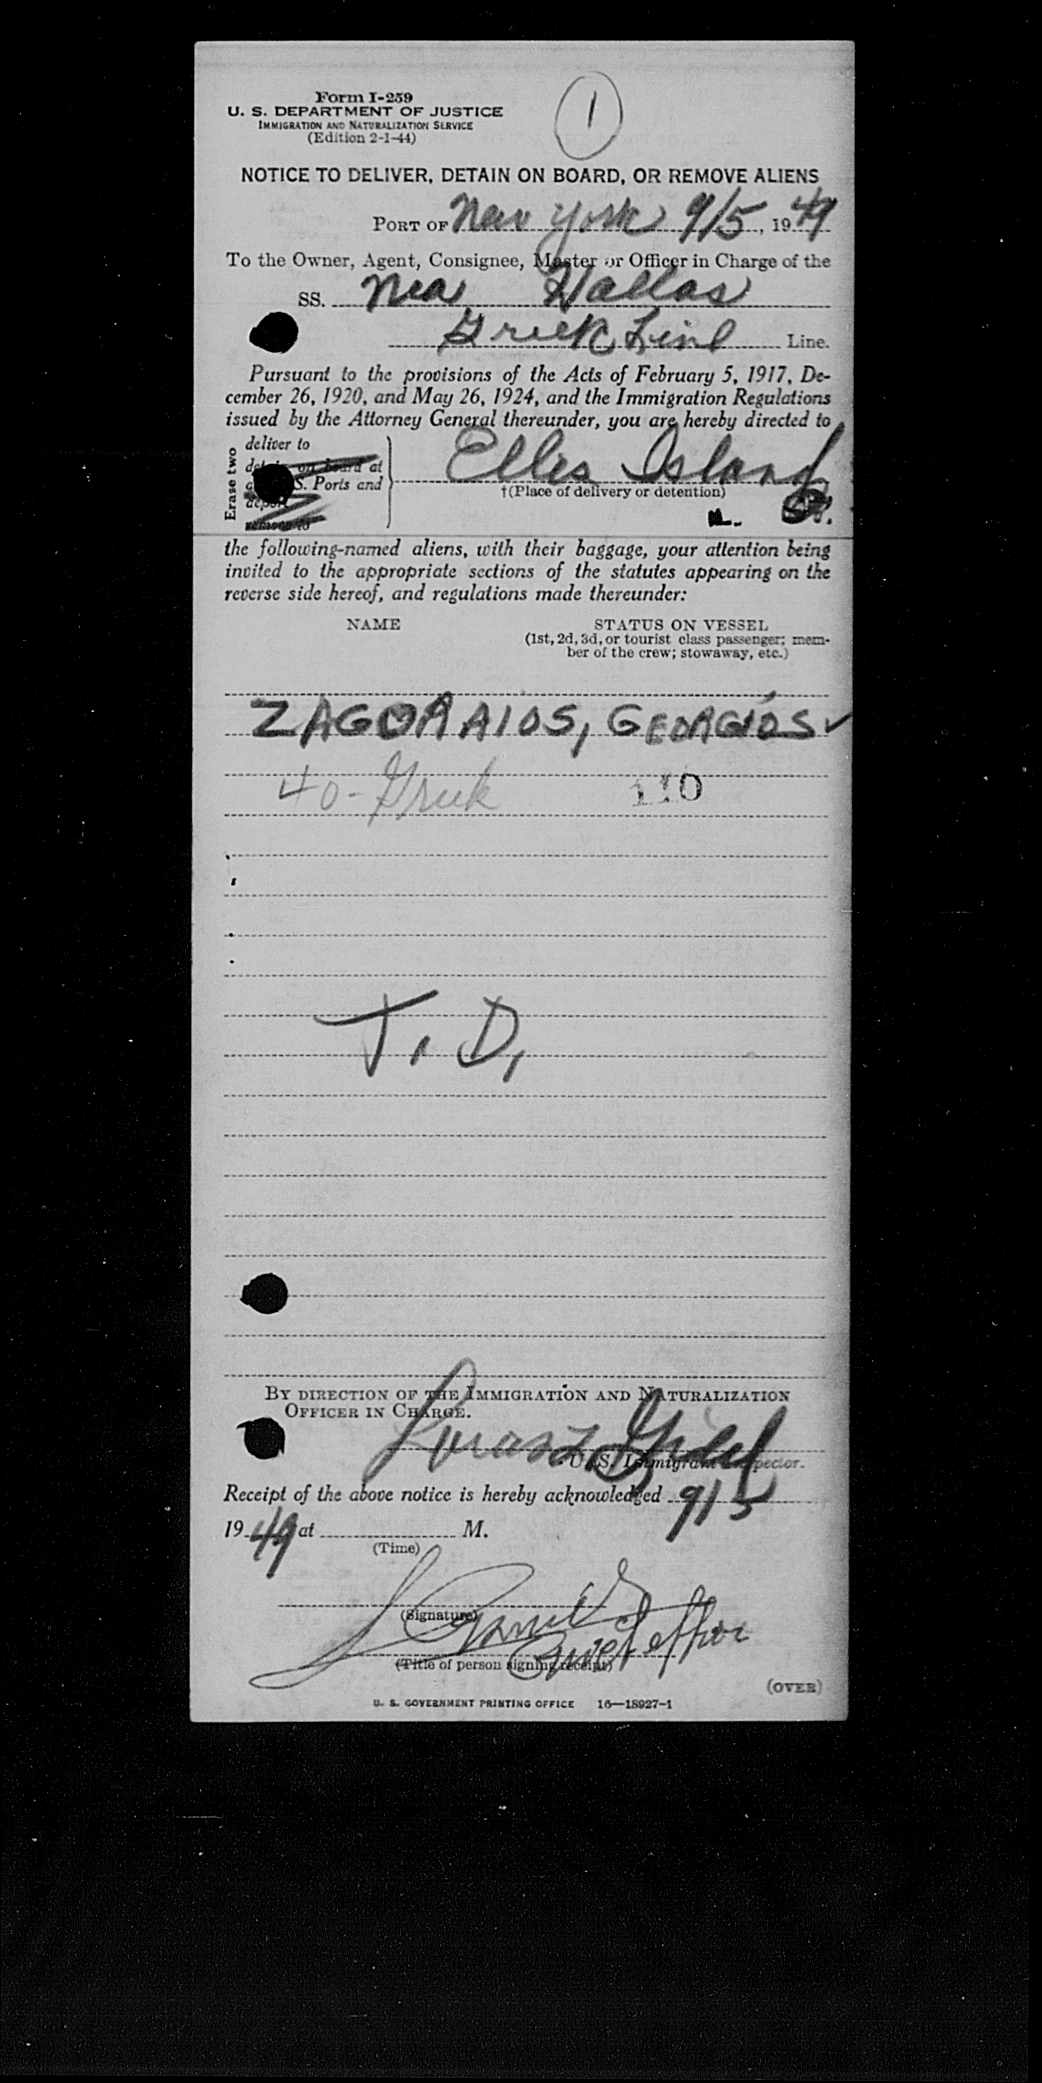 Form I-259
U. S. DEPARTMENT OF JUSTICE
IMMIGRATION AND NATURALIZATION SERVICE
(Edition 2-1-44)
1
NOTICE TO DELIVER, DETAIN ON BOARD, OR REMOVE ALIENS
PORT OF New York 9/5, 1949
To the Owner, Agent, Consignee, Master or Officer in Charge of the
SS. Nea Hallas
Greek Line Line.
Pursuant to the provisions of the Acts of February 5, 1917, De-
cember 26, 1920, and May 26, 1924, and the Immigration Regulations
issued by the Attorney General thereunder, you are hereby directed to
Erase two
deliver to
detain on board at
S. Ports and
depart
remove to
Ellis Island
†(Place of delivery or detention)
the following-named aliens, with their baggage, your attention being
invited to the appropriate sections of the statutes appearing on the
reverse side hereof, and regulations made thereunder:
NAME STATUS ON VESSEL
(1st, 2d, 3d, or tourist class passenger; mem-
ber of the crew; stowaway, etc.)
ZAGORAIOS, GEORGIOS ✓
40-Greek 110
T. D.
BY DIRECTION OF THE IMMIGRATION AND NATURALIZATION
OFFICER IN CHARGE.
U. S. Immigrant Inspector.
Receipt of the above notice is hereby acknowledged 9/5
1949 at M.
(Time)
(Signature)
(Title of person signing receipt)
(OVER)
U. S. GOVERNMENT PRINTING OFFICE 16—18927-1